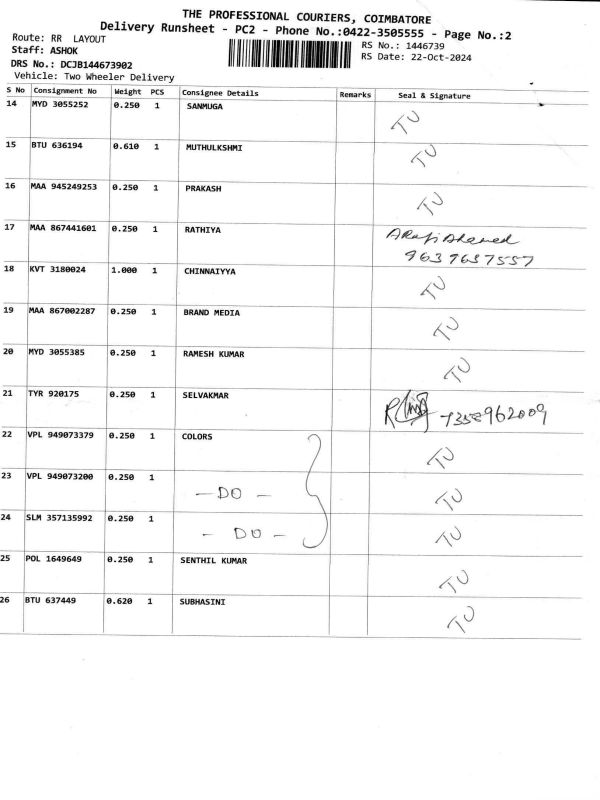 THE PROFESSIONAL COURIERS, COIMBATORE
Delivery Runsheet - PC2 - Phone No.:0422-3505555 - Page No.:2
Route: RR LAYOUT
RS No.: 1446739
Staff: ASHOK
RS Date: 22-Oct-2024
DRS No.: DCJB144673902
Vehicle: Two Wheeler Delivery
S No Consignment No Weight PCS Consignee Details Remarks Seal & Signature
14 MYD 3055252 0.250 1 SANMUGA TU
15 BTU 636194 0.610 1 MUTHULKSHMI TU
16 MAA 945249253 0.250 1 PRAKASH TU
17 MAA 867441601 0.250 1 RATHIYA
9637657557
18 KVT 3180024 1.000 1 CHINNAIYYA TU
19 MAA 867002287 0.250 1 BRAND MEDIA TU
20 MYD 3055385 0.250 1 RAMESH KUMAR TU
21 TYR 920175 0.250 1 SELVAKMAR 7358962009
22 VPL 949073379 0.250 1 COLORS TU
23 VPL 949073200 0.250 1 - DO - TU
24 SLM 357135992 0.250 1 - DO - TU
25 POL 1649649 0.250 1 SENTHIL KUMAR TU
26 BTU 637449 0.620 1 SUBHASINI TU